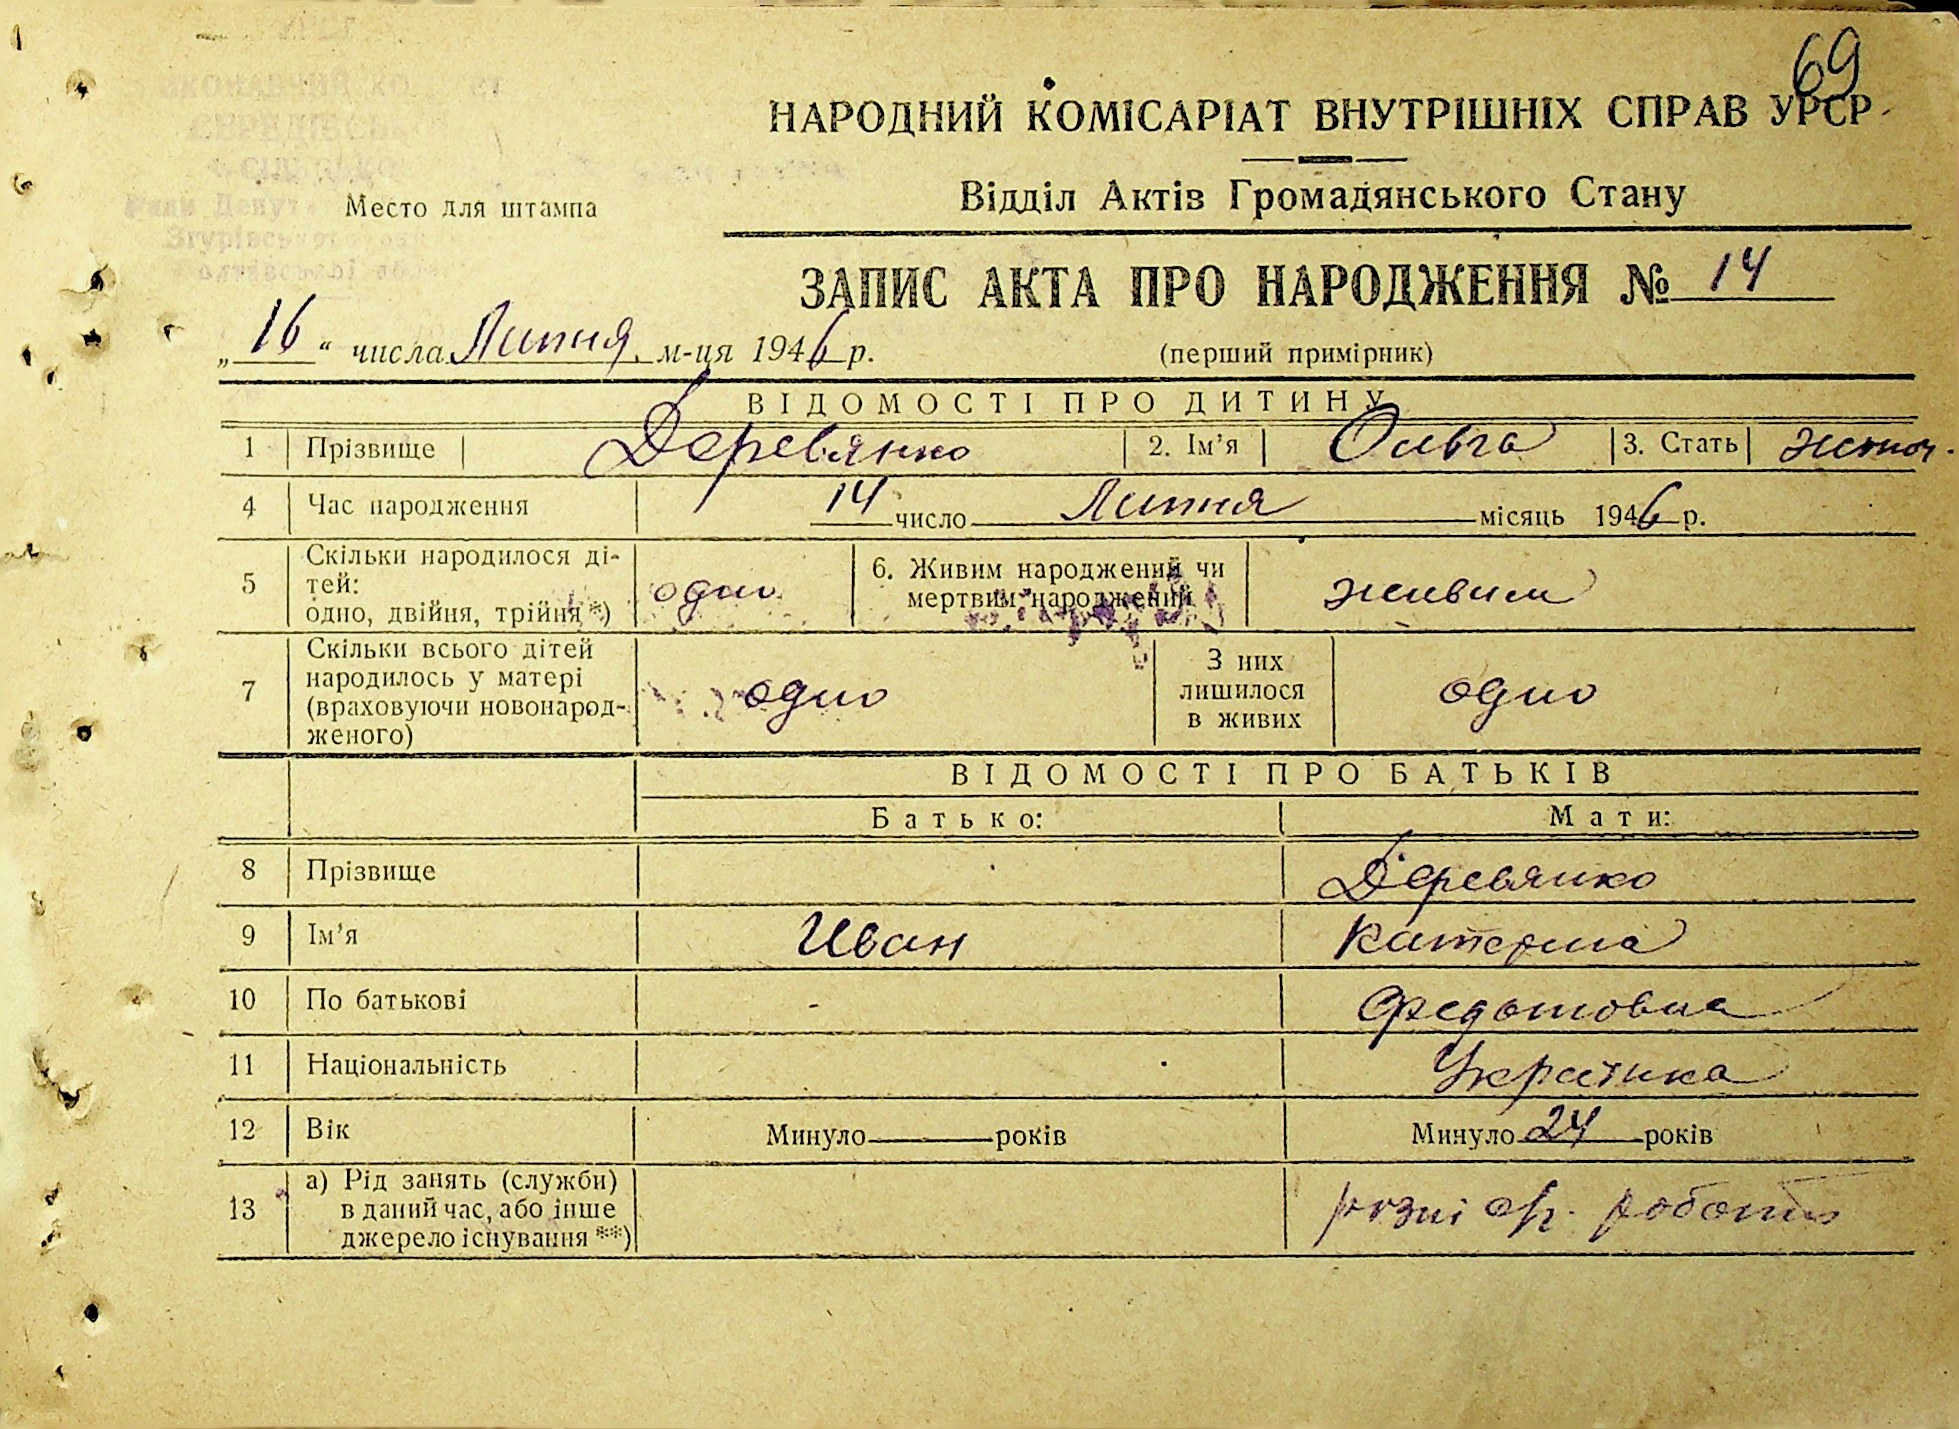 69
НАРОДНИЙ КОМІСАРІАТ ВНУТРІШНІХ СПРАВ УРСР
Место для штампа
Відділ Актів Громадянського Стану
ЗАПИС АКТА ПРО НАРОДЖЕННЯ № 14
„16“ числа Липня м-ця 1946 р.
(перший примірник)
ВІДОМОСТІ ПРО ДИТИНУ
1 Прізвище Деревянко 2. Ім’я Ольга 3. Стать жіноч.
4 Час народження 14 число Липня місяць 1946 р.
5 Скільки народилося ді-
тей:
одно, двійня, трійня *) одно 6. Живим народжений чи
мертвим народжений живим
7 Скільки всього дітей
народилось у матері
(враховуючи новонарод-
женого) одно З них
лишилося
в живих одно
ВІДОМОСТІ ПРО БАТЬКІВ
Батько: Мати:
8 Прізвище Деревянко
9 Ім’я Иван Катерина
10 По батькові - Федотовна
11 Національність Українка
12 Вік Минуло років Минуло 24 років
13 а) Рід занять (служби)
в даний час, або інше
джерело існування **) різні с/г. роботи